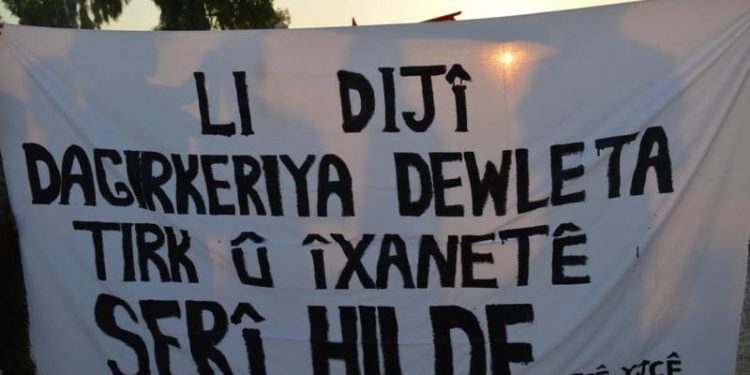 LI DIJÎ
DAGIRKERIYA DEWLETA
TIRK Û ÎXANETÊ
SERÎ HILDE